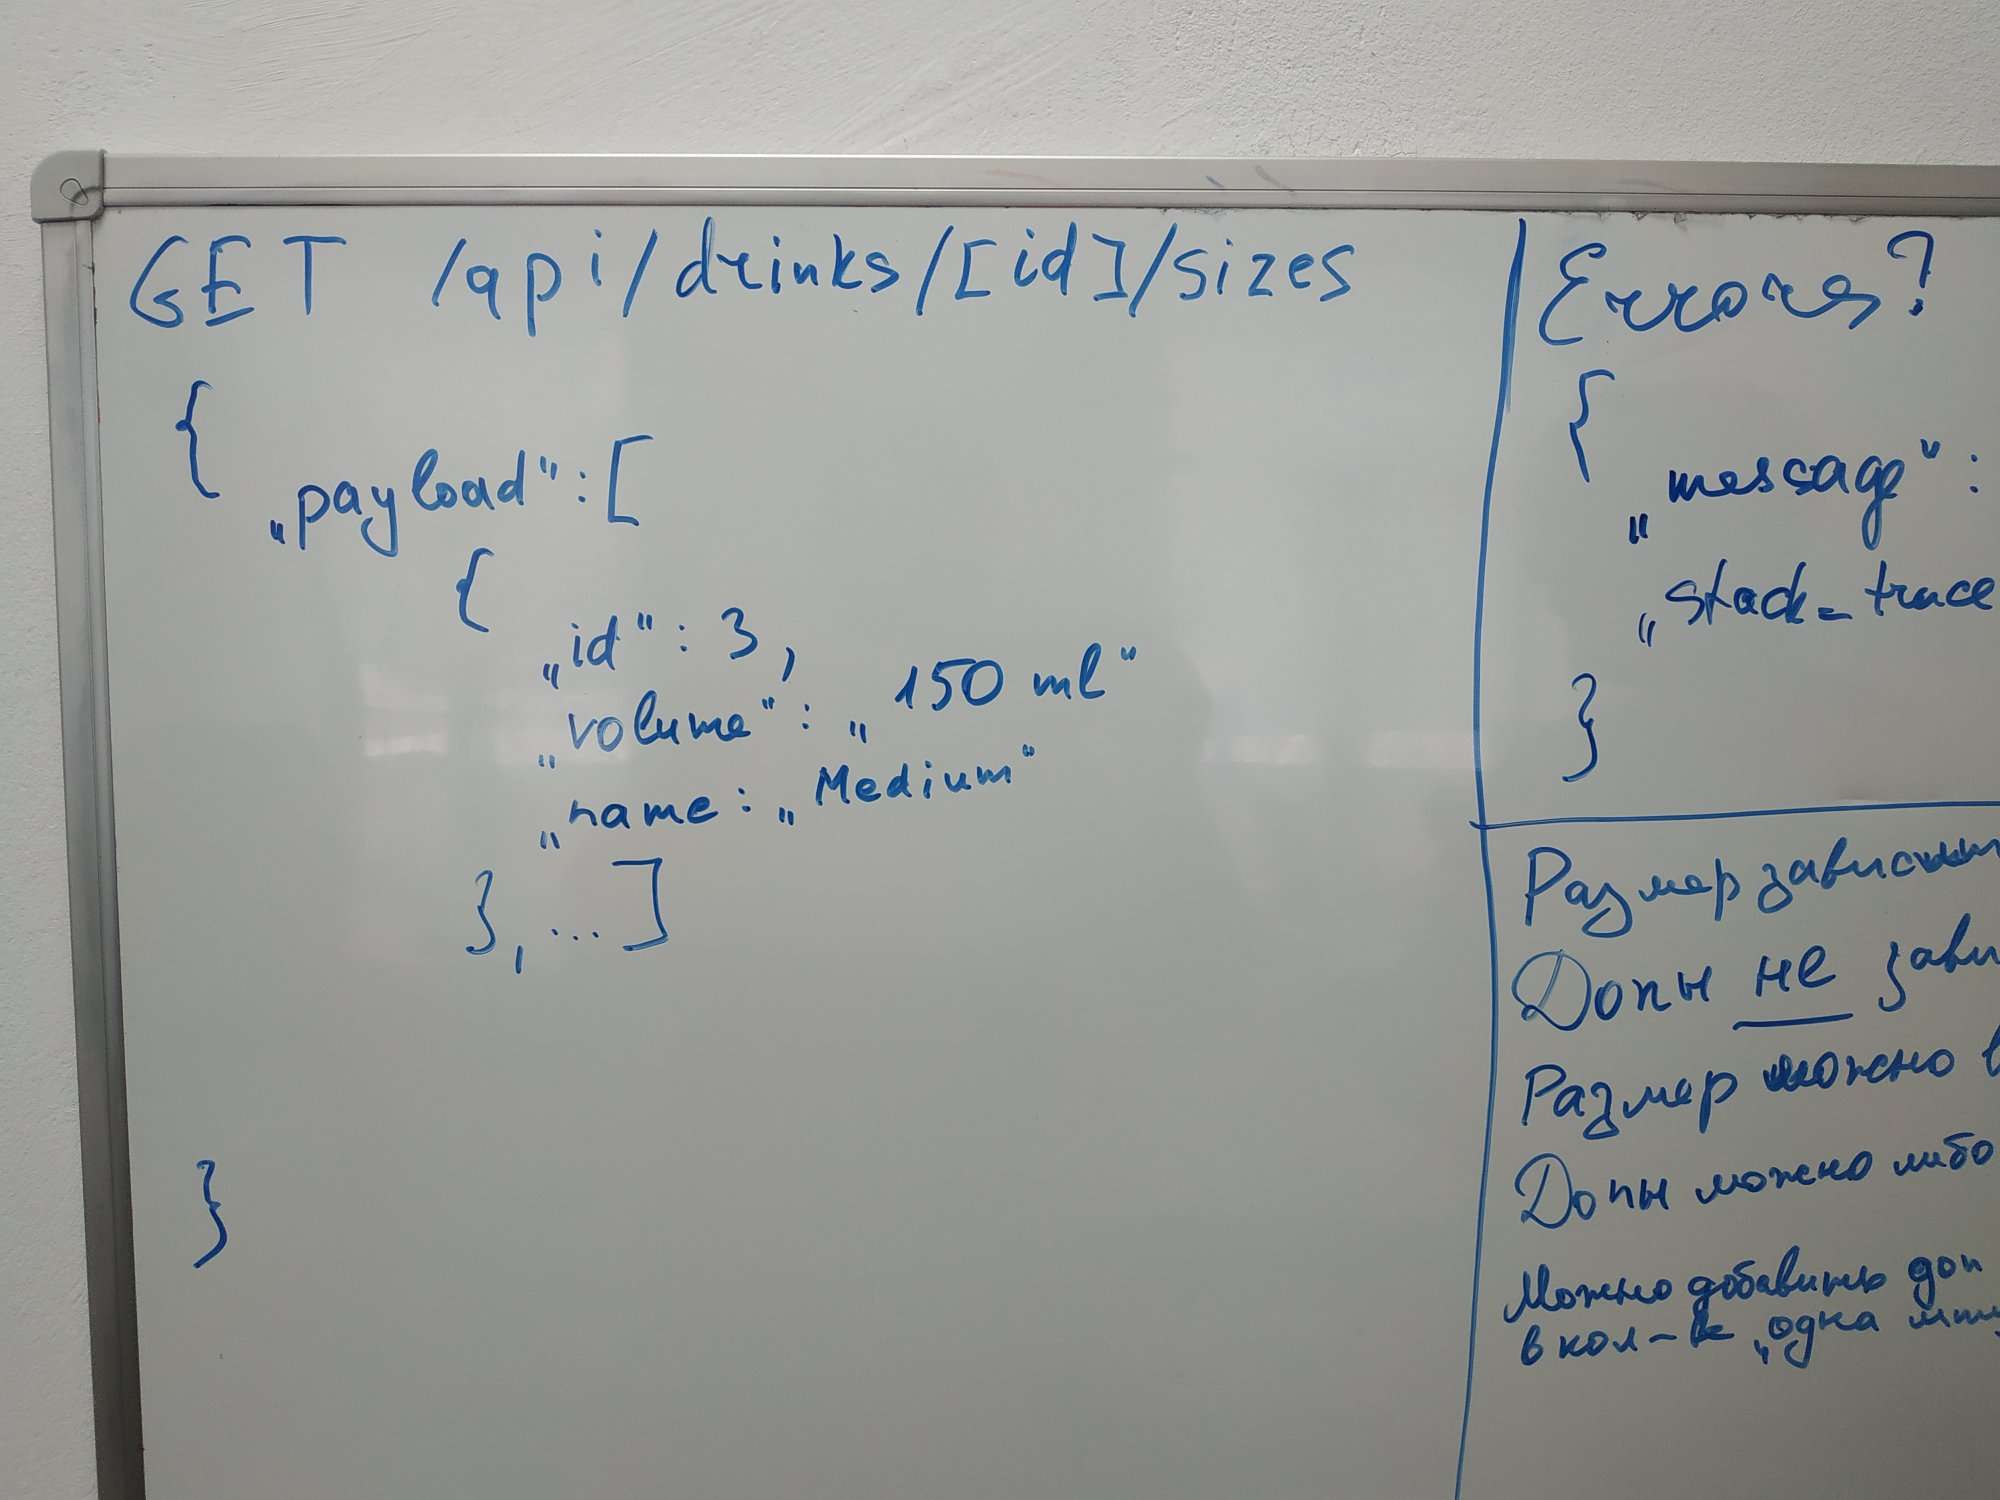 GET /api/drinks/[id]/sizes
{
„payload“: [
{
„id“: 3,
„volume“: „150 ml“
„name: „Medium“
}, ... ]
}
Errors?
{
„message“:
„stack_trace
}
Размер зависит
Допы не зави
Размер можно в
Допы можно либо
Можно добавить доп
в кол-ве „одна шту